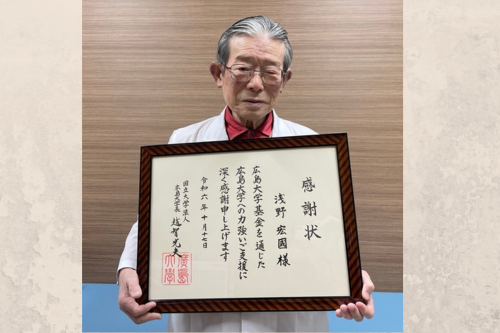 感謝状
浅野宏國様
広島大学基金を通じた
広島大学への力強いご支援に
深く感謝申し上げます
令和六年十月十七日
国立大学法人
広島大学長 越智光夫
廣島大學